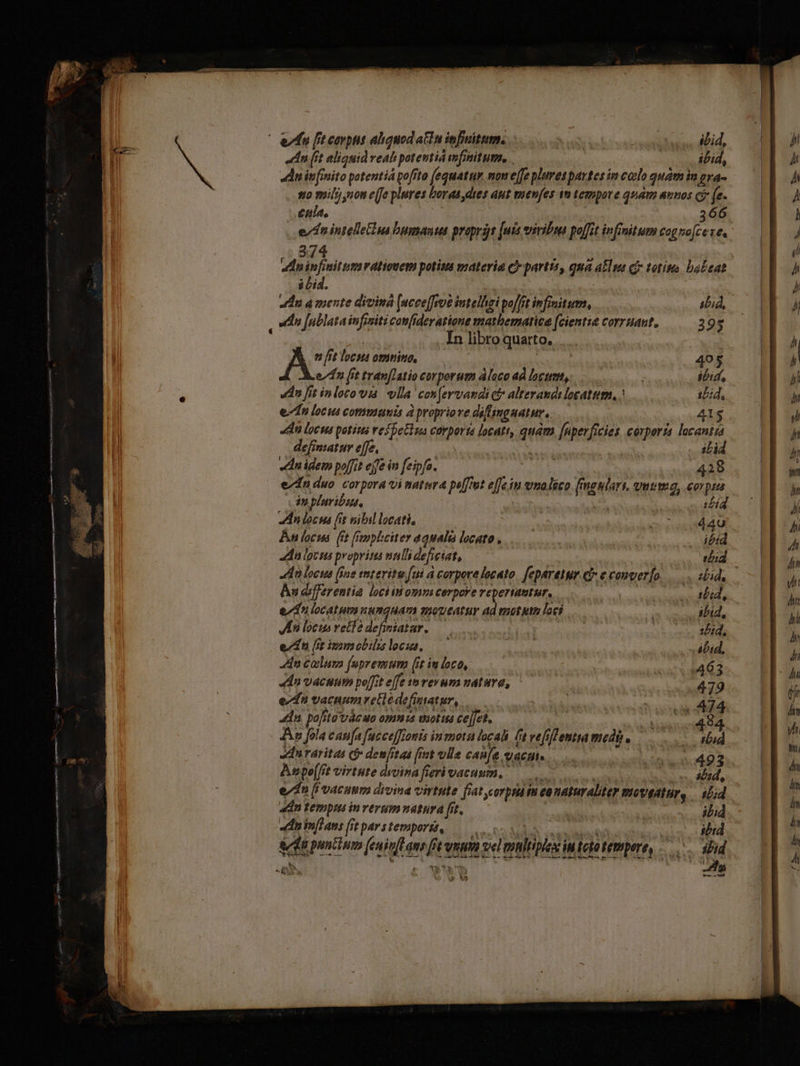 An sit corpus aliquod actu infinitum. ibid,
An sit aliquid reali potentiâ infinitum, ibid,
An infinito potentiâ posito sequatur non esse plures partes in cœlo quàm in gra-
no milij, non esse plures horas, dies aut menses in tempore quàm annos & se-
cula. 366
An intellectus humanus proprijs suis viribus possit infinitum cognoscere.
374
An infinitum rationem potius materiæ & partis, quâ actus & totius habeat
ibid.
An a mente divinâ successivè intelligi possit infinitum, ibid,
An sublata infiniti consideratione mathematicæ scientiæ corruant, 395
In libro quarto.
An sit locus omnino, 405
An sit translatio corporum à loco ad locum, ibid,
An sit in loco vis ulla conservandi & alterandi locatum, ibid,
An locus communis à propriore distinguatur, 415
An locus potius respectus corporis locati, quàm superficies corporis locantis
definiatur esse, ibid
An idem possit esse in seipso. 428
An duo corpora vi natura possint esse in uno loco singulari, unumq, corpus
in pluribus, ibid
An locus sit nihil locati, 440
An locus sit simpliciter æqualis locato, ibid
An locus proprius nulli deficiat, ibid
An locus sine interitu sui à corpore locato separetur & e converso, ibid,
An differentiæ loci in omni corpore reperiantur, ibid,
An locatum nunquam moveatur ad motum loci ibid,
An locus rectè definiatur, ibid,
An sit immobilis locus, ibid,
An cœlum supremum sit in loco, 463
An vacuum possit esse in rerum naturâ, 479
An vacuum rectè definiatur, 474
An posito vacuo omnis motus cesset, 484
An sola causa successionis in motu locali sit resistentia medij, ibid
An raritas & densitas sint ullæ causæ vacui, 493
An possit virtute divina fieri vacuum, ibid,
An si vacuum divina virtute fiat, corpus in eo naturaliter moveatur, ibid
An tempus in rerum natura sit, ibid
An instans sit pars temporis, ibid
An punctum seu instans sit unum vel multiplex in toto tempore, ibid
An